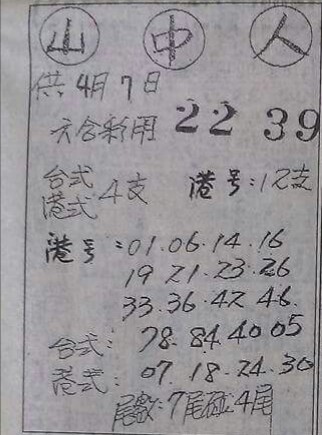 山 中 人
供4月7日
六合彩用 22 39
台式
港式 4支 港号:12支
港号:01.06.14.16
19 21.23.26
33.36.42 46.
台式: 78.84 40 05
港式: 07.18.24.30
尾數:7尾碰:4尾